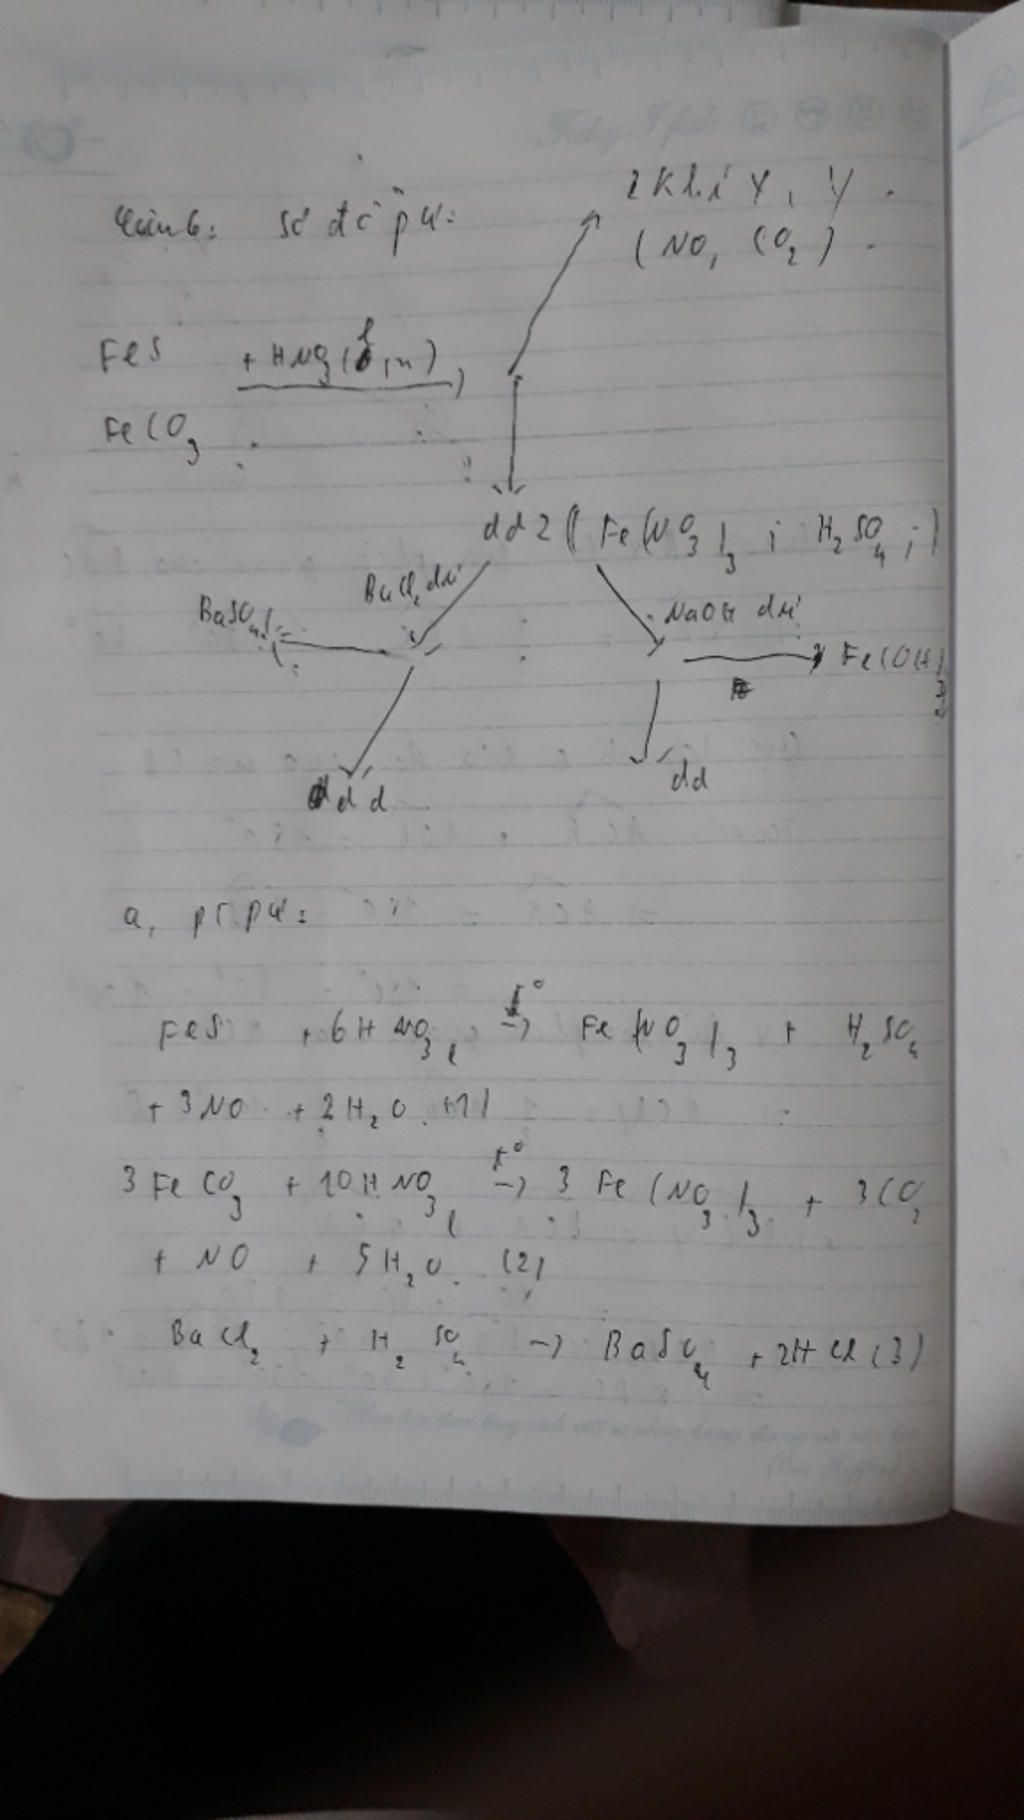 Today I feel:
sơ đồ pư:
2 Khí Y, Y.
(NO, CO2).
FeS + HNO3 (l, n)
FeCO3
dd Z ( Fe(NO3)3 ; H2SO4 ; )
BaCl2 dư
NaOH dư
BaSO4
Fe(OH)3
dd
dd
a, ptpư:
FeS + 6HNO3 l -t°-> Fe(NO3)3 + H2SO4
+ 3NO + 2H2O (1)
3FeCO3 + 10HNO3 l -t°-> 3Fe(NO3)3 + 3CO2
+ NO + 5H2O. (2)
BaCl2 + H2SO4 -> BaSO4 + 2HCl (3)